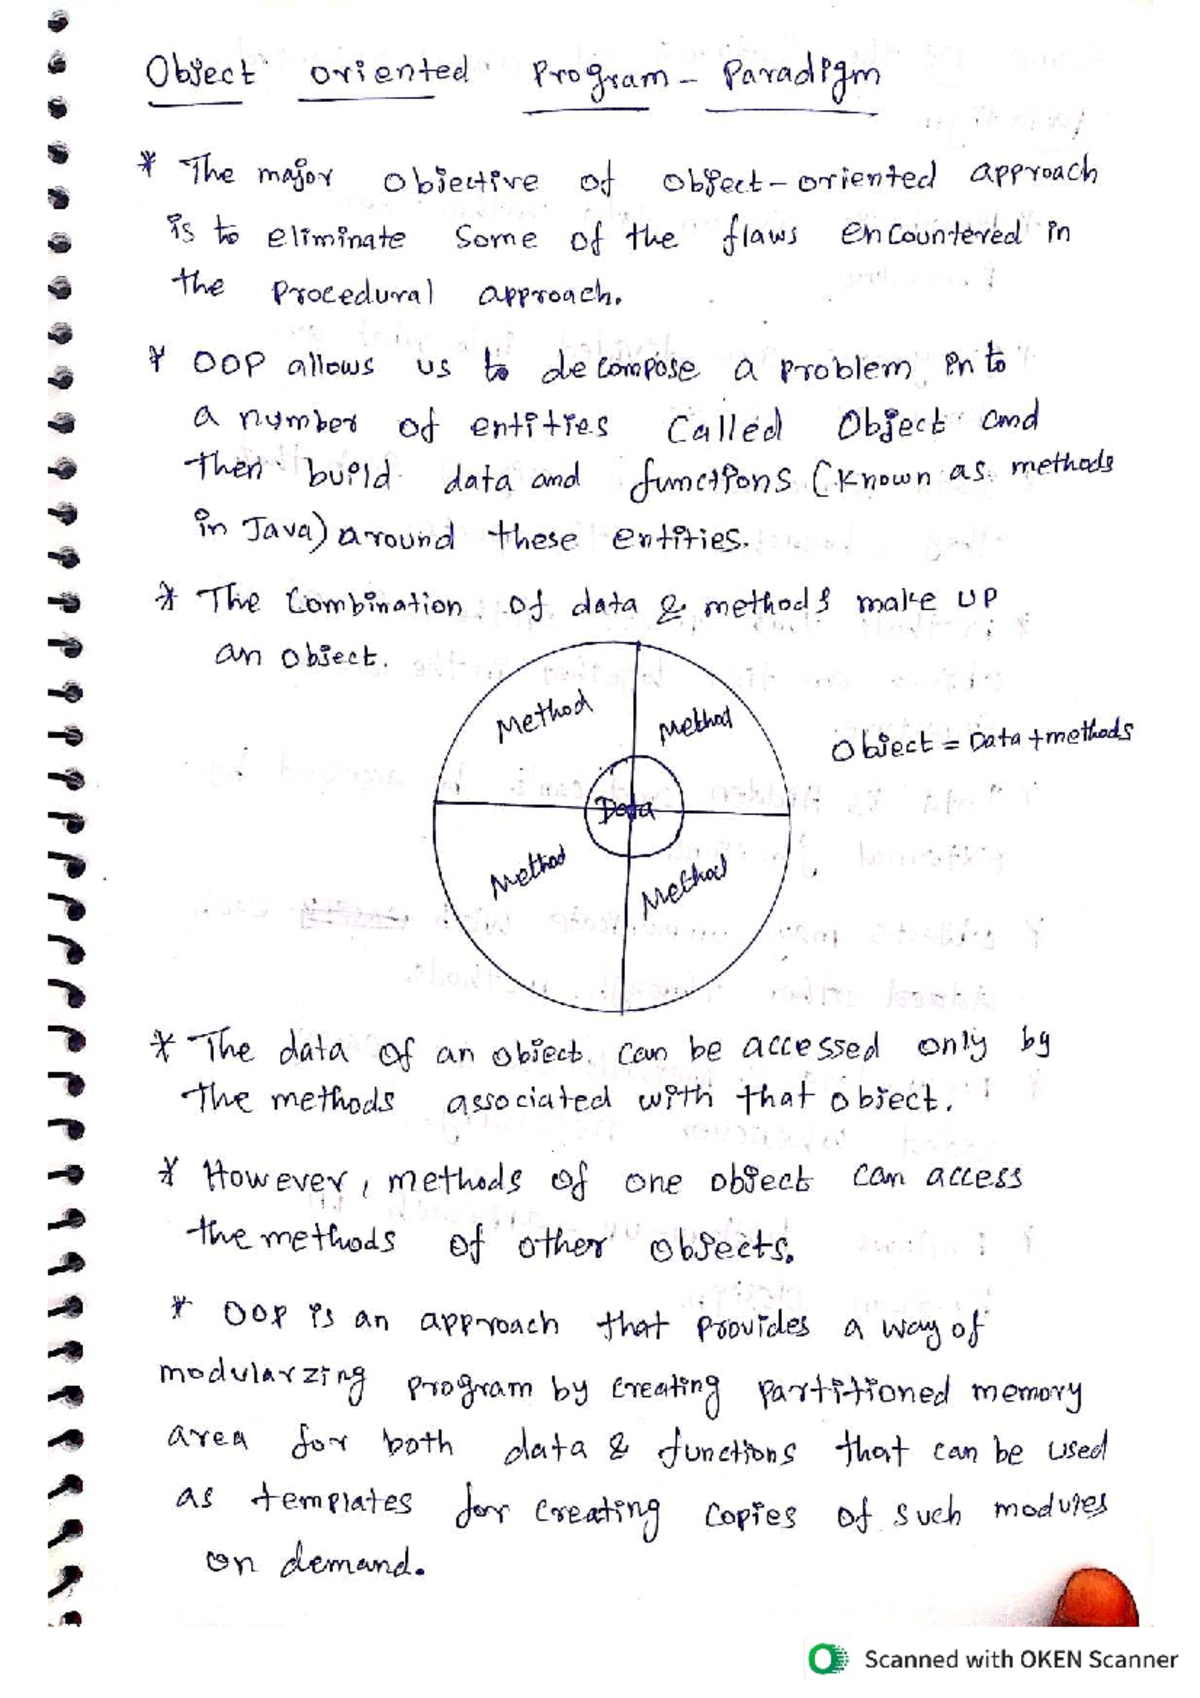 Object oriented Program - Paradigm
* The major objective of object-oriented approach
is to eliminate some of the flaws encountered in
the procedural approach.
* OOP allows us to decompose a problem in to
a number of entities called Object and
then build data and functions (known as methods
in Java) around these entities.
* The combination of data & methods make up
an object.
Method
Method
Object = Data + methods
Data
Method
Method
* The data of an object can be accessed only by
the methods associated with that object.
* However, methods of one object can access
the methods of other objects.
* OOP is an approach that provides a way of
modularzing program by creating partitioned memory
area for both data & functions that can be used
as templates for creating copies of such modules
on demand.
Scanned with OKEN Scanner